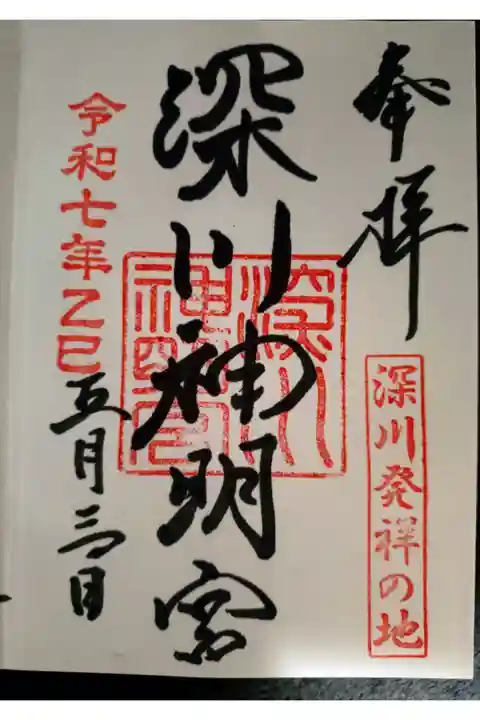 奉拝
深川発祥の地
深川神明宮
深川神明宮
令和七年乙巳
五月三日